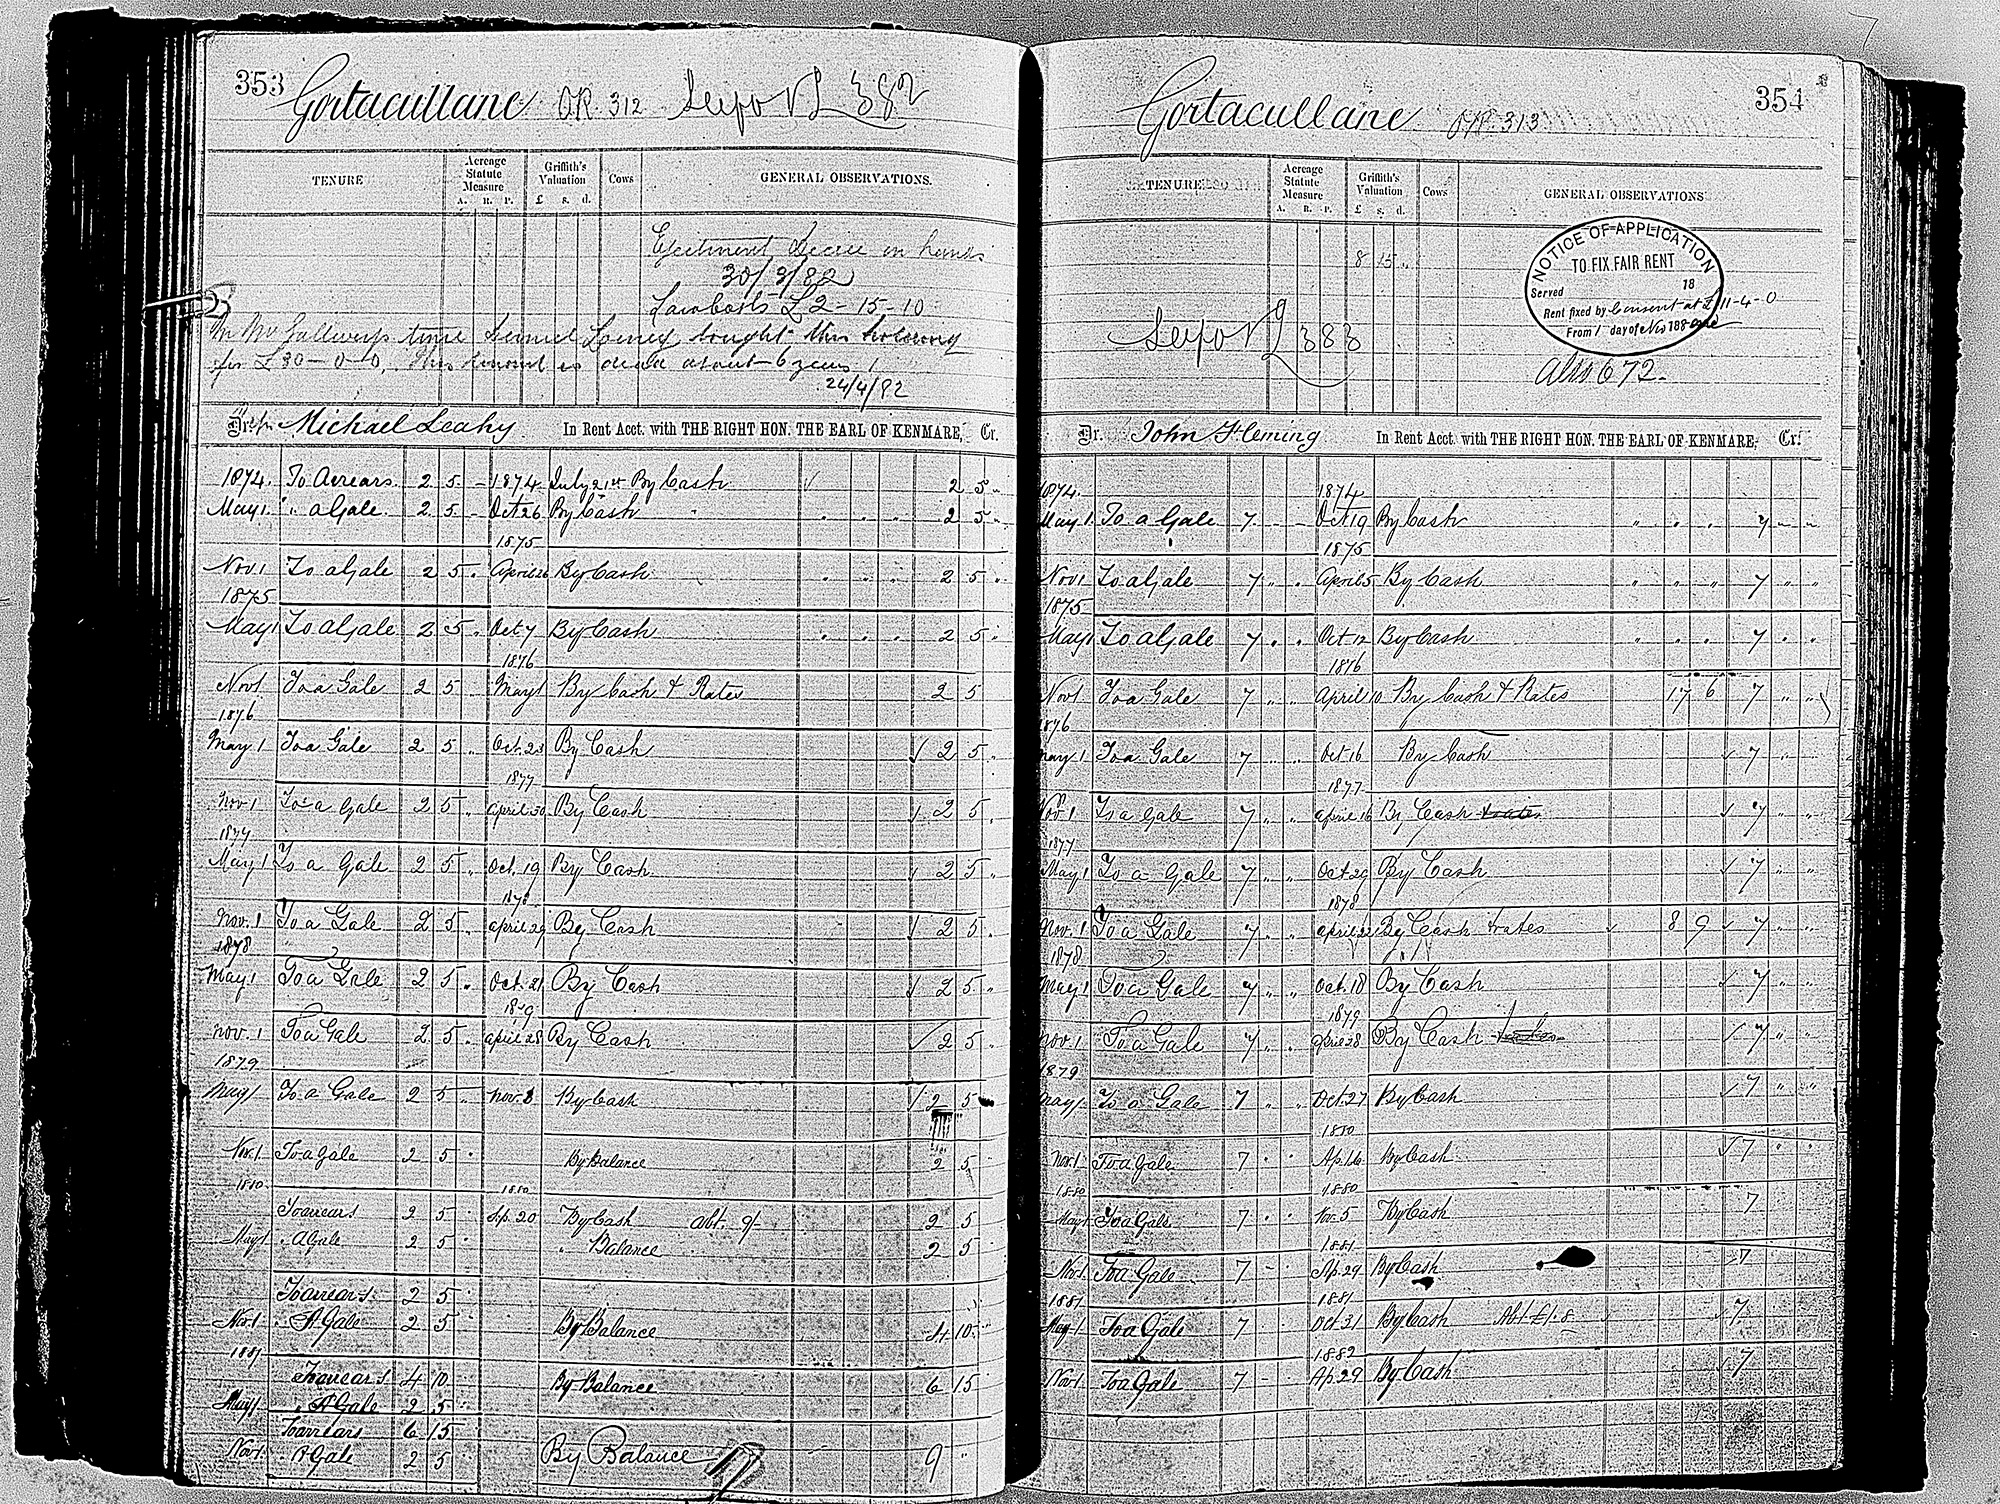 353 Gortacullane OR. 312 L 382
TENURE Acrege Statute Measure A. R. P. Griffith's Valuation £ s. d. Cows GENERAL OBSERVATIONS.
Ejectment Decree in hands
30/3/82
Law Costs £2-15-10
In Mr Gallweys time bought this holding
for £30-0-0, this amount is about 6 years
24/4/82
Dr. Michael Leahy In Rent Acct. with THE RIGHT HON. THE EARL OF KENMARE, Cr.
1874. To Arrears 2 5 - 1874 July 21st By Cash 2 5 "
May 1 " a Gale 2 5 - Oct 26 By Cash 2 5 "
1875
Nov. 1 To a Gale 2 5 " April 26 By Cash 2 5 "
1875
May 1 To a Gale 2 5 " Oct 7 By Cash 2 5 "
1876
Nov 1 To a Gale 2 5 May 1 By Cash & Rates 2 5
1876
May 1 To a Gale 2 5 " Oct. 23 By Cash 2 5 "
1877
Nov 1 To a Gale 2 5 " April 30 By Cash 2 5 "
1877
May 1 To a Gale 2 5 " Oct. 19 By Cash 2 5 "
1878
Nov. 1 To a Gale 2 5 " April 29 By Cash 2 5 "
1878
May 1 To a Gale 2 5 " Oct. 21 By Cash 2 5 "
1879
Nov. 1 To a Gale 2 5 " April 28 By Cash 2 5 "
1879
May 1 To a Gale 2 5 " Nov. 3 By Cash 2 5
Nov. 1 To a Gale 2 5 " By Balance 2 5
1880 1880
To arrears 2 5 Sep. 20 By Cash abt. 9/- 2 5
May 1 " A Gale 2 5 " Balance 2 5
To arrears 2 5
Nov. 1 " A Gale 2 5 By Balance 4 10
1881
To arrears 4 10 By Balance 6 15
May 1 " A Gale 2 5
To arrears 6 15
Nov 1 " A Gale 2 5 By Balance 9 "
354 Gortacullane OR. 313
TENURE Acrege Statute Measure A. R. P. Griffith's Valuation £ s. d. Cows GENERAL OBSERVATIONS
8 15 "
NOTICE OF APPLICATION
TO FIX FAIR RENT
Served 18
Rent fixed by Consent at £11-4-0
From 1 day of Nov 188
L 383
Also 672.
Dr. John Fleming In Rent Acct. with THE RIGHT HON. THE EARL OF KENMARE, Cr.
1874. 1874
May 1 To a Gale 7 - - Oct 19 By Cash 7 - -
1875
Nov 1 To a Gale 7 " " April 5 By Cash 7 " "
1875
May 1 To a Gale 7 " " Oct 12 By Cash 7 " "
1876
Nov 1 To a Gale 7 " " April 10 By Cash & Rates 17 6 7 " "
1876
May 1 To a Gale 7 " " Oct 16 By Cash 7 " "
1877
Nov 1 To a Gale 7 " " April 16 By Cash 7 " "
1877
May 1 To a Gale 7 " " Oct 29 By Cash 7 " "
1878
Nov. 1 To a Gale 7 " " April 22 By Cash & rates 8 9 7 " "
1878
May 1 To a Gale 7 " " Oct. 18 By Cash 7 " "
1879
Nov. 1 To a Gale 7 " " April 28 By Cash 7 " "
1879
May 1 To a Gale 7 " " Oct. 27 By Cash 7 " "
1880
Nov. 1 To a Gale 7 " " Ap. 16 By Cash 7 " "
1880 1880
May 1 To a Gale 7 " " Nov. 5 By Cash 7
1881
Nov. 1 To a Gale 7 - Ap. 29 By Cash 7
1881 1881
May 1 To a Gale 7 Oct. 21 By Cash Abt. £1.8 7
1882
Nov 1 To a Gale 7 - Ap. 29 By Cash 7